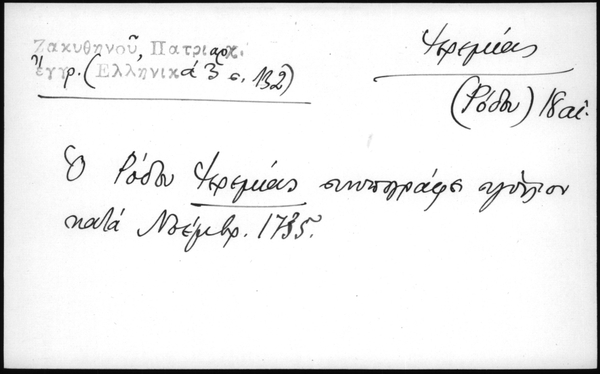 Ζακυθηνοῦ, Πατριαρχ.
ἔγγρ. (Ἑλληνικά 3 σ. 132)
Ἱερεμίας
(Ρόδου) 18 αἰ.
Ὁ Ρόδου Ἱερεμίας συνυπογράφει
κατά Νοέμβρ. 1735.